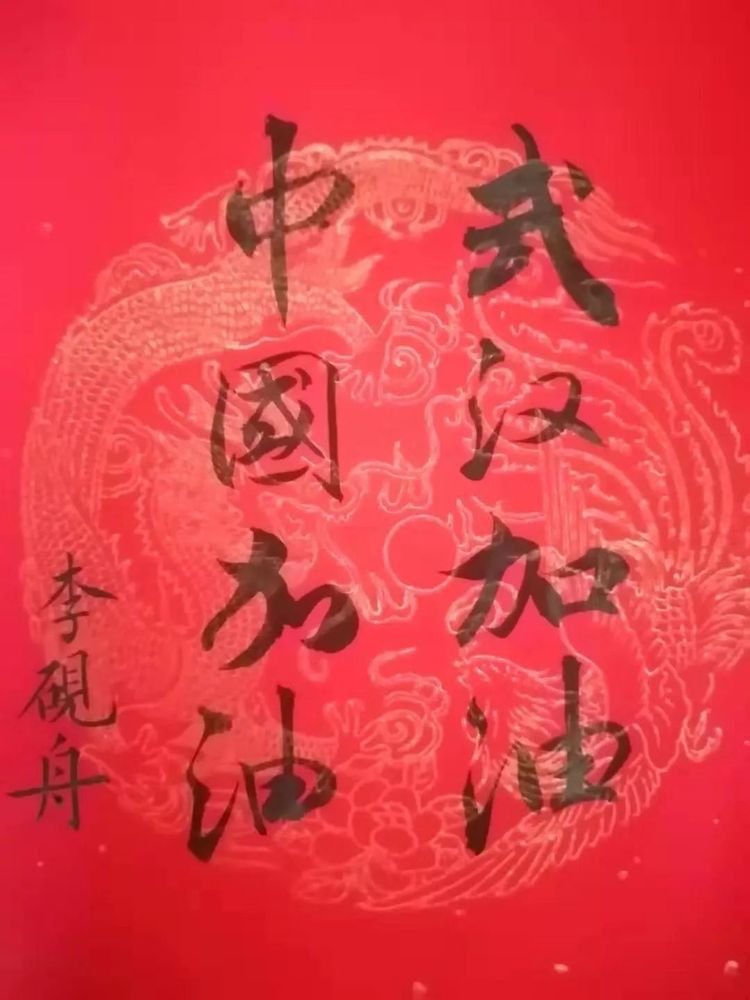 武汉加油
中國加油
李硯舟